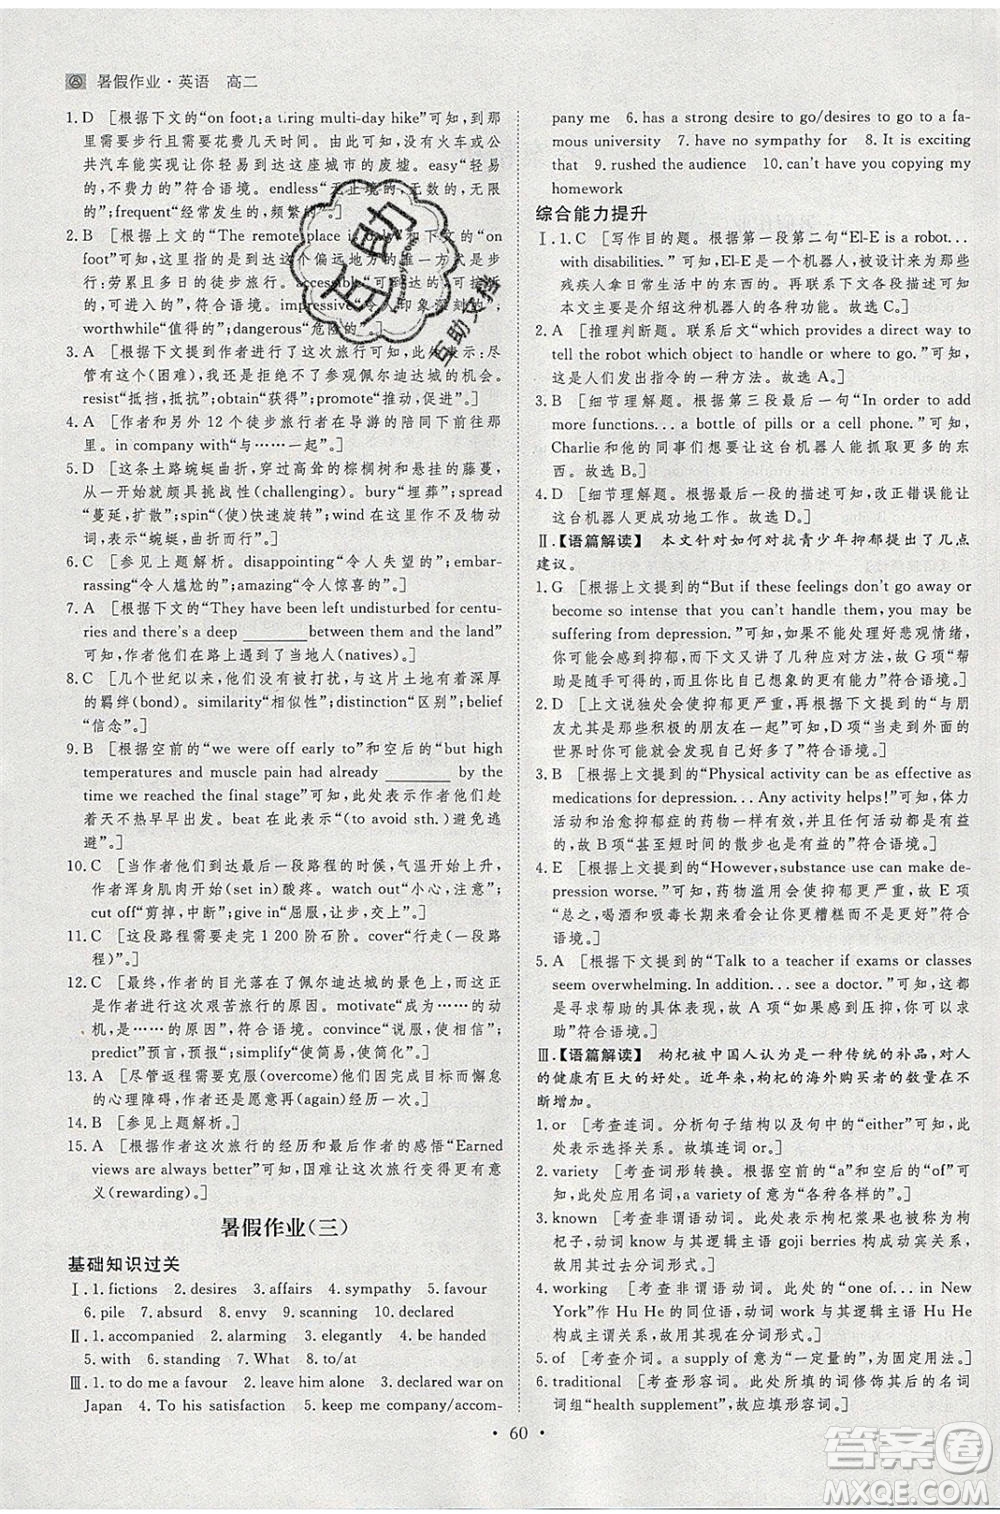 暑假作业·英语 高二
1. D [根据下文的“on foot:a tiring multi-day hike”可知,到那
里需要步行且需要花费几天时间。由此可知,没有火车或公
共汽车能实现让你轻易到达这座城市的废墟。easy“轻易
的”符合语境。endless“无止境的,无数的,无限
的”;frequent“经常发生的,频繁的”。]
2. B [根据上文的“The remote place is only”和下文的“on
foot”可知,到达这个偏远地方的唯一途径是进行一次
艰苦、劳累且多日的徒步旅行。accessible“可到达的”
符合语境。impressive“令人印象深刻的”;
worthwhile“值得的”;dangerous“危险的”。]
3. A [根据下文提到作者继续了这次旅行可知,此处表示:尽
管有这(困难),我还是抵抗不了参观佩尔迪达城的机会。
resist“抵挡,抵抗”;obtain“获得”;promote“推动,促进”。]
4. A [作者和另外 12 个徒步旅行者在导游的陪同下去了那
里。in company with“与……一起”。]
5. D [这条土路蜿蜒曲折,穿过高耸的棕榈树和悬挂的藤蔓,
一开始就颇具挑战性(challenging)。bury“埋葬”;spread
“蔓延,扩散”;spin“(使)快速旋转”;wind 在这里作不及物动
词,表示“蜿蜒、曲折而行”。]
6. C [参见上题解析。disappointing“令人失望的”;embar-
rassing“令人尴尬的”;amazing“令人惊喜的”。]
7. A [根据下文的“They have been left undisturbed for centu-
ries and there's a deep ______ between them and the land”
可知,作者在路上遇到了当地人(natives)。]
8. C [几个世纪以来,他们没有被打扰,与这片土地有着深厚
的羁绊(bond)。similarity“相似性”;distinction“区别”;belief
“信念”。]
9. B [根据空前的“we were off early to”和空后的“but high
temperatures and muscle pain had already ______ by the
time we reached the final stage”可知,此处表示作者他们趁
着天不热早早出发。beat 在此表示“(to avoid sth.)避免逃
避”。]
10. C [当作者他们到达最后一段路程的时候,气温开始上升,
作者浑身肌肉开始(set in)酸疼。watch out“小心,注意”;
cut off“剪掉,中断”;give in“屈服,让步,交上”。]
11. C [这段路程需要走完 1 200 阶石阶。cover“行走(一段路
程)”。]
12. C [最终,作者的目光落在了佩尔迪达城的景色上,而这种
景色使得作者进行这次艰苦旅行。motivate“成为……的动
机,是……的原因”,符合语境。convince“说服,使信服”;
predict“预言,预报”;simplify“使简易,使简化”。]
13. A [尽管返程需要克服(overcome)他们因完成目标而懈怠
的心理障碍,作者还是愿意再次(again)经历这一切。]
14. B [参见上题解析。]
15. A [根据作者这次旅行的经历和最后作者的感悟“Earned
views are always better”可知,困难让这次旅行变得更有意
义(rewarding)。]
暑假作业(三)
基础知识过关
Ⅰ. 1. fictions 2. desires 3. affairs 4. sympathy 5. favour
6. pile 7. absurd 8. envy 9. scanning 10. declared
Ⅱ. 1. accompanied 2. alarmed 3. elegantly 4. be handed
5. with 6. standing 7. What 8. to/at
Ⅲ. 1. to do me a favour 2. leave him alone 3. declared war on
Japan 4. To his satisfaction 5. keep me company/accom-
pany me 6. has a strong desire to go/desires to go to a fa-
mous university 7. have no sympathy for 8. It is exciting
that 9. rushed the audience 10. can't have you copying my
homework
综合能力提升
Ⅰ. 1. C [写作目的题。根据第一段第二句“El-E is a robot...
with disabilities.”可知,El-E 是一个机器人,它被设计用来帮
残疾人拿日常生活中的东西的。再联系下文各段描述可知,
本文主要是介绍这种机器人的使用的。故选 C。]
2. A [推理判断题。联系后文“which provides a direct way to
tell the robot which object to handle or where to go.”可知,
这是人们发出指令的一种方法。故选 A。]
3. B [细节理解题。根据第三段最后一句“In order to add
more functions... a bottle of pills or a cell phone.”可知,
Charlie 和他的同事们想让这台机器人能抓取更多的东
西。故选 B。]
4. D [细节理解题。根据最后一段的描述可知,改正错误能让
这台机器人更成功地工作。故选 D。]
Ⅱ.【语篇解读】 本文针对如何对抗青少年抑郁提出了几点
建议。
1. G [根据上文提到的“But if these feelings don't go away or
become so intense that you can't handle them, you may be
suffering from depression.”可知,如果你不能处理好悲观情绪,
你就可能会感到抑郁,而下文又讲了几种应对方法,故 G 项“帮
助是随手可得的,而且你比自己想象的更有效果”符合语境。]
2. D [上文说独处会使抑郁更严重。根据下文提到的“与朋
友尤其是那些积极的朋友在一起”可知,D 项“当走到外面的
世界时你可能就会发现自己好多了”符合语境。]
3. B [根据上文提到的“Physical activity can be as effective as
medications for depression... Any activity helps!”可知,体力
活动和治愈抑郁症的药物一样有效,任何的活动都是有益
的,故 B 项“甚至短时间的散步也是有益的”符合语境。]
4. E [根据上文提到的“However, substance use can make de-
pression worse.”可知,药物滥用会使抑郁更严重,故 E 项
“总之,喝酒和吸毒长期来看会让你更糟糕而不是更好”符合
语境。]
5. A [根据下文提到的“Talk to a teacher if exams or classes
seem overwhelming. In addition... see a doctor.”可知,这
是寻求帮助的具体表现,故 A 项“如果你感到压抑,可以求
助”符合语境。]
Ⅲ.【语篇解读】 枸杞被中国人认为是一种传统的补品,对人
的健康有巨大的好处。近年来,枸杞的海外购买者的数量在不
断增加。
1. or [考查连词。分析句子结构以及句中的“either”可知,
此处表示选择关系。故填连词 or。]
2. variety [考查词形转换。根据空前的“a”和空后的“of”可
知,此处应用名词,a variety of“各种各样的”。]
3. known [考查非谓语动词。此处表示枸杞浆果也被称作枸
杞子,know 与其逻辑主语 goji berries 构成动宾关系,故填
过去分词形式。]
4. working [考查非谓语动词。此处的“one of... in New
York”作 Hu He 的同位语,动词 work 与其逻辑主语 Hu He
构成主谓关系,故用现在分词形式。]
5. of [考查介词。a supply of 意为“一定量的”,为固定用法。]
6. traditional [考查形容词。此处所填的词修饰其后的名词
词组“health supplement”,故填形容词。]
60
互助
互助文摘
答案圈
MXQE.COM